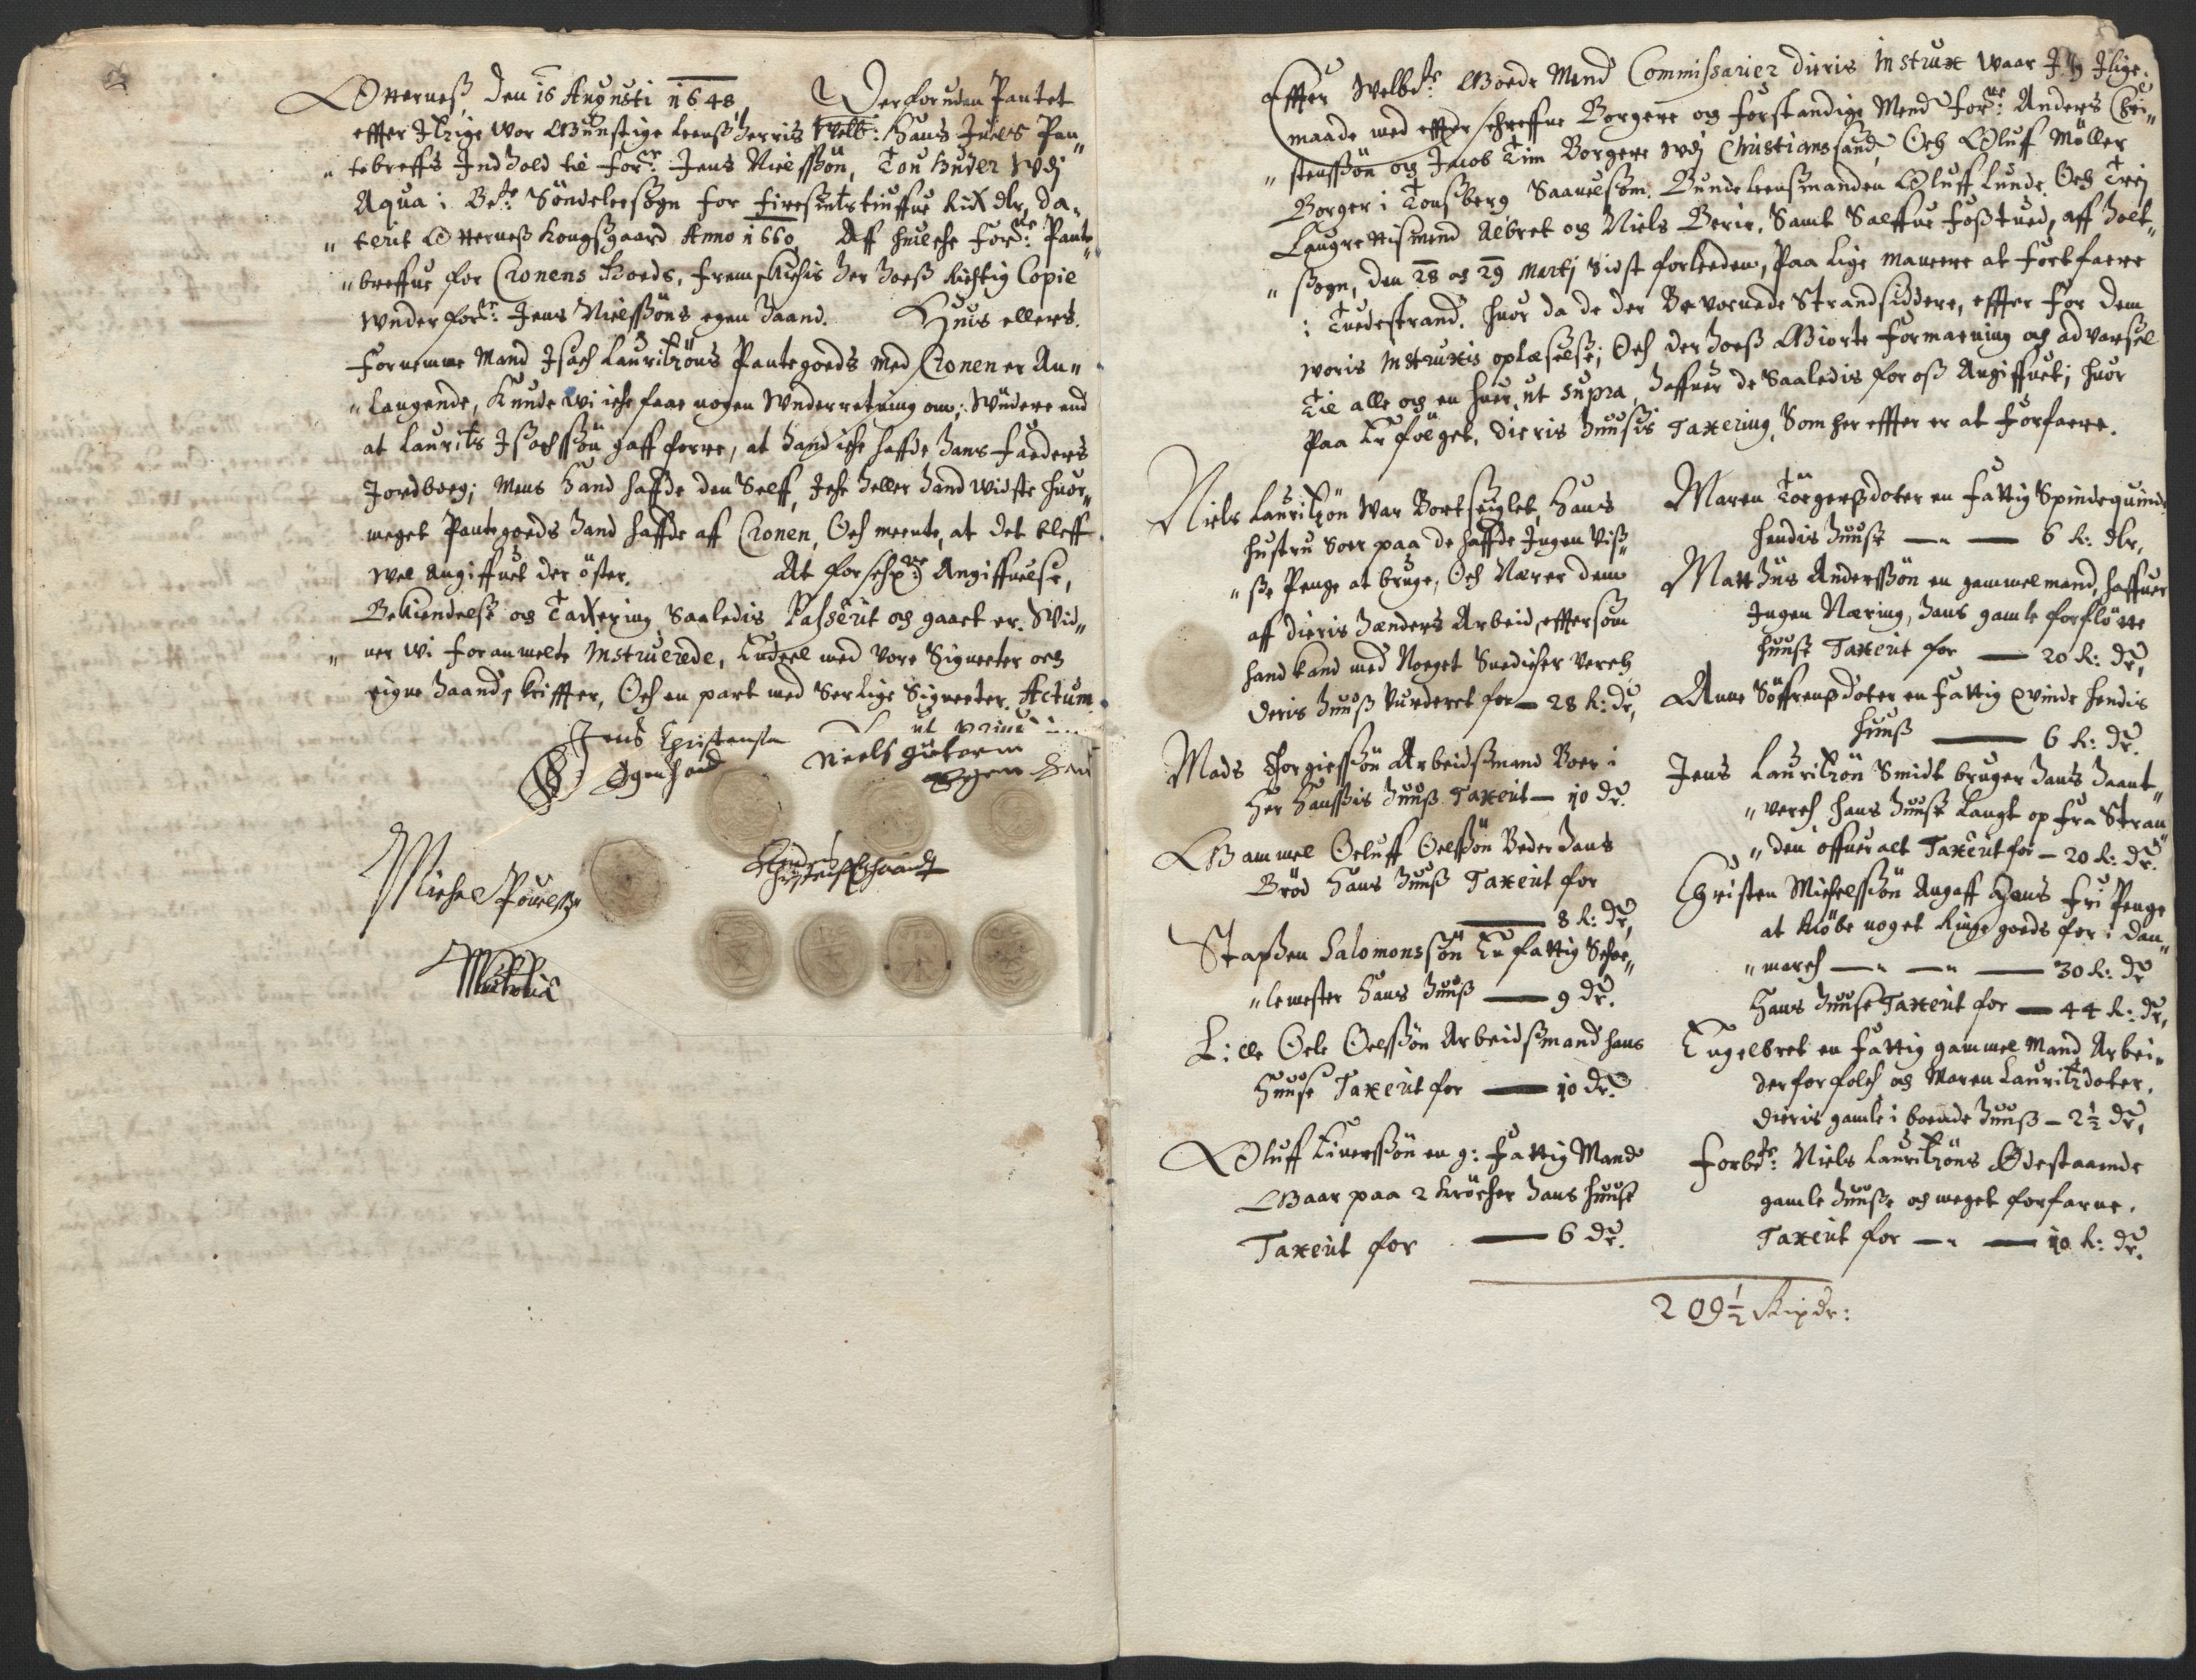 Otterneß, den 16 Augusti 1648, Der foruden Pantet
effter Ilige wor Gunstige Leenß herris Welb: Hans Juels Pan„
„tebreffs Indhold til for: Jens Nielssøn, Tou huder wdj
Aqua i Be: Søndelessogn for firesintstiuffue Rix dlr, da„
„terit Otterneß Kongsgaard Anno 1660, Aff huilche for: Pant„
„breffue for Cronens Goeds, fremskichis her hoeß Richtig Copie
wnder for: Jens Nielssøns egen haand. Huis ellers
fornemme Mand Isach Lauritzøns Pantegoeds med Cronen er An„
„langende, Kunde wi iche faae nogen wnderretning om; Widere end
at Laurits Isachssøn gaff forre, at hand iche haffde hans faeders
Jordboeg; Mens hand haffde den Selff, Iche heller hand widste huor„
meget Pantegoeds hand haffde aff Cronen, Och meente, at det bleff
wel angiffuet der øster. At forschr: Angiffuelse,
Bekiendelse og Taxering Saaledis Passerit og gaaet er. Wid„
„ner wi foranmelte Instruerede, Endeel med vore Signeeter och
eigne haandskriffter, Och en part med Serlige Signeeter. Actum
ut prin
Jens Christensen Niels guttorm
Egen hand egen han
Anders
Christensen
Michel Pouelssøn
Effter Welbe: Goede Mend Commissarier dieris Instrux waar Jeg Ilige„
maade med effterschreffne Borgere og forstandige Mend for: Anders Chri„
„stenssøn og Jacob Tim Borgere wdj Christianssand, Och Oluff Møller
Borger i Tonsberg Saauelsom Bundeleensmanden Oluff Lunde Och Trej
Laugrettismend Albret og Niels Berie, Samt Salffue Foßtued, aff Holt„
„sogn, den 28 og 29 Martj Sidst forleeden, Paa Lige maneere at forfaere
i Tuedestrand. huor da de der Bevonede Strandsiddere, effter for dem
woris Instruxis oplæselse; Och der hoeß Giorte formaening og advarsel
Til alle og en huer, ut supra, haffuer de Saaledis for oß Angiffuet; huor
Paa Er følget, dieris huusis Taxering, Som her effter er at forfaere.
Niels Lauritzøn War Bortseiglet, Hans
hustru Soer paa de haffde Ingen Viß„
„se Penge at bruge, Och Nærer dem
aff dieris hænders Arbeid, effter som
hand kand med Noeget Snedicher Verch
deris huuß Vurderet for — 28 R: dr,
Mads Torgiessøn Arbeidsmand Boer i
Her Hanssis huuß Taxerit — 10 dr.
Gammel Oeluff Oelssøn Beder hans
Brød Hans huuß Taxerit for
— 8 R: dr,
Staphen Salomonssøn En fattig Schoe„
„lemester Hans huuß — 9 dr.
Lille Oele Oelssøn Arbeidsmand hans
Huuse Taxerit for — 10 dr.
Oluff Einerssøn en g: fattig Mand
Gaar paa 2 Krøcher hans huuse
Taxerit for — 6 dr.
Maren Torgersdoter en fattig Spindequinde
hendis huuse — 6 R: dlr,
Matthius Anderssøn en gammel mand, haffuer
Ingen Næring, hans gamle forfløtte
huuse Taxerit for — 20 R: dr,
Anne Søffrensdoter en fattig Qvinde hendis
huuß — 6 R: dr.
Jens Lauritzøn Smidt bruger hans haant„
„verch hans huuse Langt op fra Stran„
„den offueralt Taxerit for — 20 R: dr.
Christen Michelssøn Angaff Hans fri Penge
at kiøbe noget Ringe goeds for i Dan„
„march — 30 R: dr
Hans huuse Taxerit for — 44 R: dr,
Engelbret en fattig gammel Mand Arbei„
der for folch og Maren Lauritzdoter,
dieris gamle i boende huuß — 2½ dr,
Forbe: Niels Lauritzøns Ødestaaende
gamle huuse og meget forfarne,
Taxerit for — 10 R: dr.
209½ Rixdr: